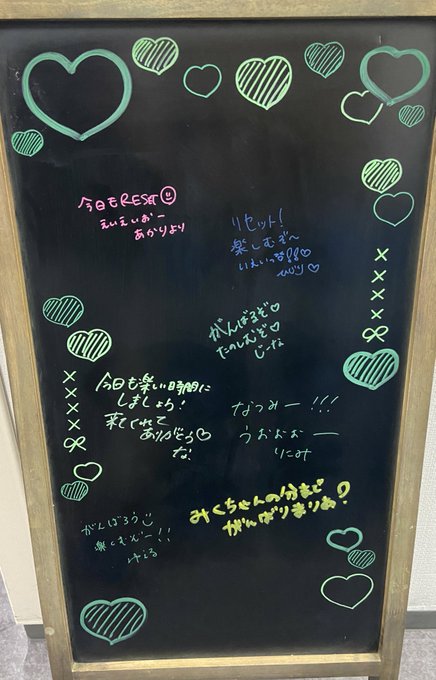 今日もRESET
えいえいおー
あかりより
リセット!
楽しむぞ〜
いえいっ✌✌♡
ひびり♡
がんばるぞ♡
たのしむぞ♡
じーな
今日も楽しい時間に
しましょう!
来てくれて
ありがとう♡
な!
なつみー!!!
うおおおー
りにみ
みくちゃんの分まで
がんばりまりあ?
がんばろう
楽しむぞー!!